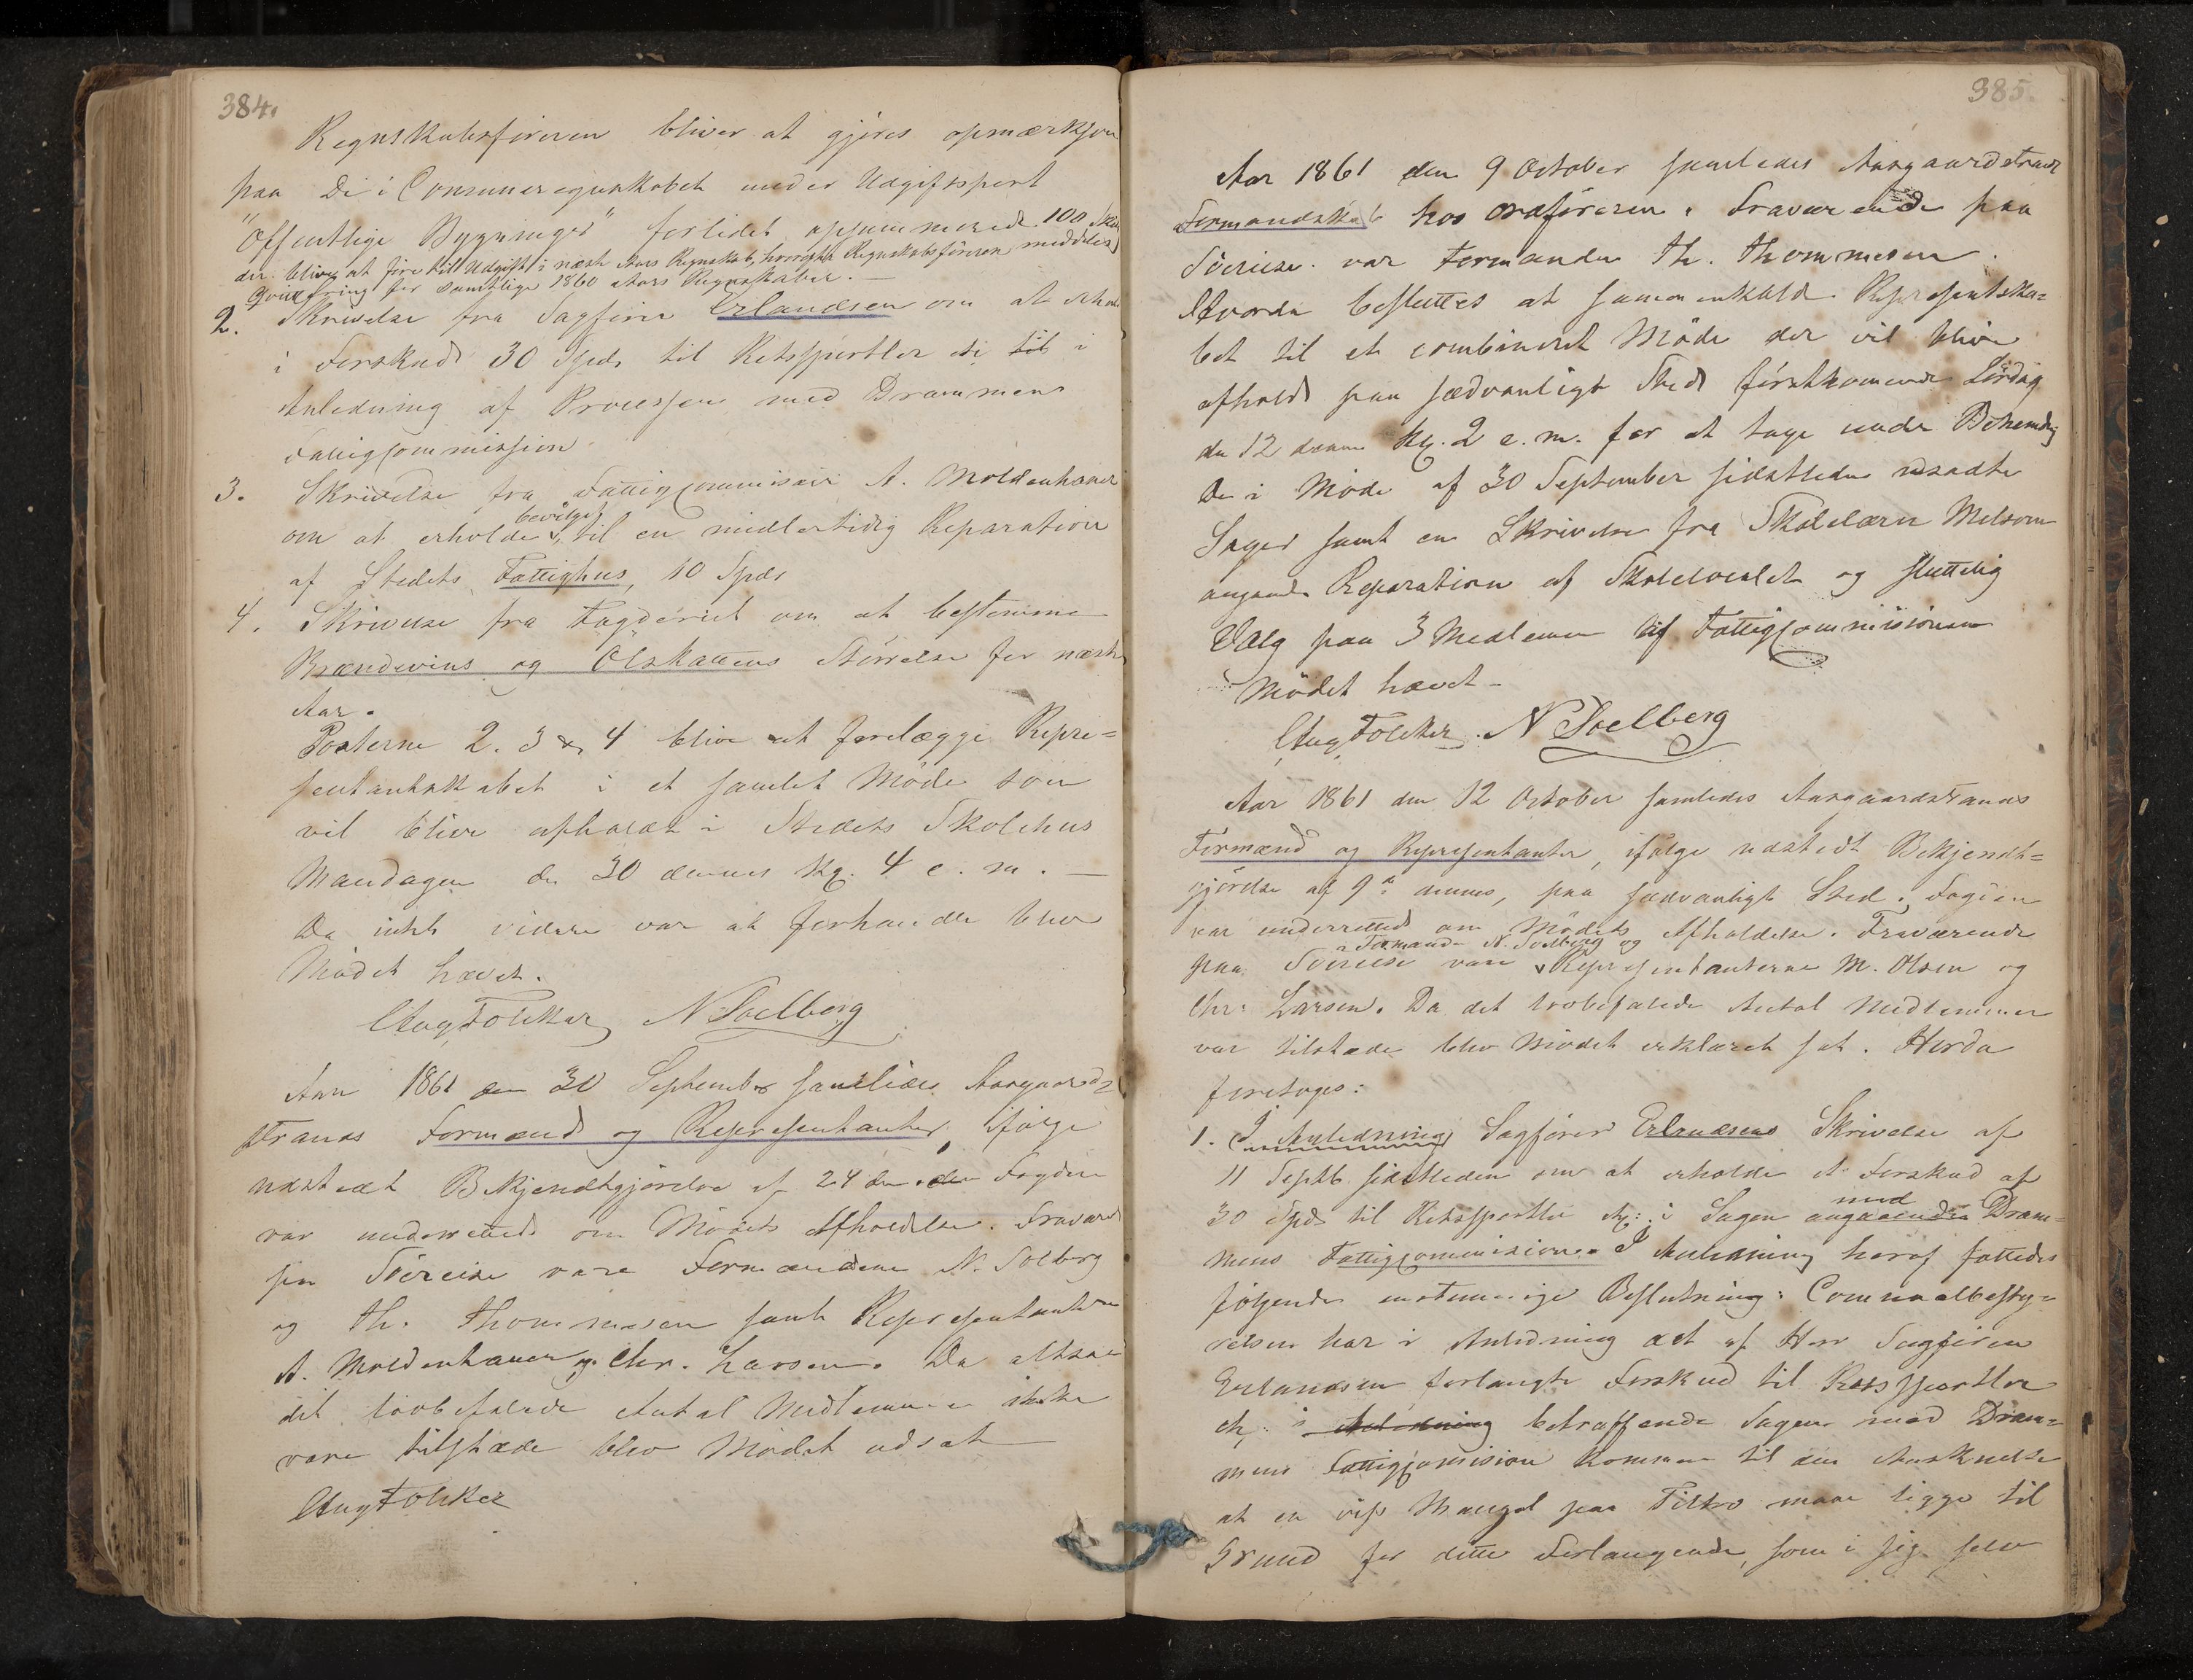 384.
Regnskabsføreren bliver at gjøres opmærksom
paa De i Communeregnskabet under Udgiftspost
"Offentlige Bygninger" forlidet opsummerede 100 Skil
der bliver at føre till Udgift i næste Aars Regnskab, hvorefter Regnskabsføreren meddeles
Qvittering for samtlige 1860 Aars Regnskaber. —
2. Skrivelse fra Sagfører Erlandsen om at erholde
i Forskud 30 Spd. til Retssportler etc til i
Anledning af Processen med Drammens
Fattigcommission
3. Skrivelse fra Fattigcommissair A. Moldenhauer
om at erholde bevilget til en midlertidig Reparation
af Stedets Fattighus, 10 Spdr
4. Skrivelse fra Fogderiet om at bestemme
Brændevins og Ölskattens Størrelse for næste
Aar.
Posterne 2. 3 & 4 blive at forelægge Repre=
sentantskabet i et samlet Møde som
vil blive afholdt i Stedets Skolehus
Mandagen den 30 dennes Kl. 4 e. m. —
Da intet videre var at forhandle blev
Mødet hævet.
Aug Fölcker N Soelberg
Aar 1861 den 30 September samledes Aasgaard=
strands Formænd og Representanter, ifølge
udstedt Bekjendtgjørelse af 24 dennes. Fogden
var underrettet om Mødets Afholdelse. Fraværende
paa Söreise vare Formændene N. Solberg
og Th. Thommesen samt Representanterne
A. Moldenhauer og Chr. Larsen. Da altsaa
det lovbefalede Antal Medlemmer ikke
vare tilstæde blev Mødet udsat
Aug Fölcker
385.
Aar 1861 den 9 October samledes Aasgaardstrands
Formandskab hos Ordføreren. Fraværende paa
Söreise var Formanden Th. Thommesen.
Hvorda besluttes at sammenkalde Representska=
bet til et combineret Møde der vil blive
afholdt paa sædvanligt Sted førstkommende Lørdag
den 12 dennes Kl. 2 e. m. for at tage under Behandlg
De i Møde af 30 September sidstleden udsadte
Sager samt en Skrivelse fra Skolelærer Melsom
angaaende Reparation af Skolelocalet og sluttelig
Valg paa 3 Medlemmer af Fattigcommissionen
Mødet hævet —
Aug Fölcker. N Soelberg
Aar 1861 den 12 October samledes Aasgaardstrands
Formænd og Representanter, ifølge udstedt Bekjendt=
gjørelse af 9de dennes, paa sædvanligt Sted. Fogden
var underrettet om Mødets Afholdelse. Fraværende
paa Söreise vare Formanden N. Soelberg og Representanterne M. Olsen og
Chr. Larsen. Da det lovbefalede Antal Medlemmer
var tilstede blev Mødet erklæret sat. Hvorda
foretoges:
1. I Anledning Sagfører Erlandsens Skrivelse af
11 Septb. sidstleden om at erholde et Forskud af
30 Spd. til Retssportler etc. i Sagen angaaende med Dram=
mens Fattigcommission. I Anledning heraf fattedes
følgende enstemmige Beslutning: Communalbesty=
relsen har i Anledning det af Herr Sagfører
Erlandsen forlangte Forskud til Retssportler
etc. i Anledning betræffende Sagen med Dram=
mens Fattigcomission kommen til den Anskuelse
at en vis Mangel paa Tiltro maa ligge til
Grund for dette Forlangende, som i sig selv